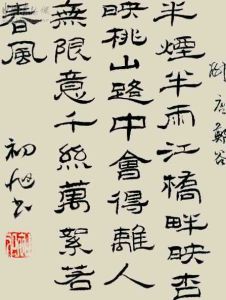 唐鄭谷
半煙半雨江橋畔映杏
映桃山路中會得離人
無限意千絲萬絮若
春風
初旭书